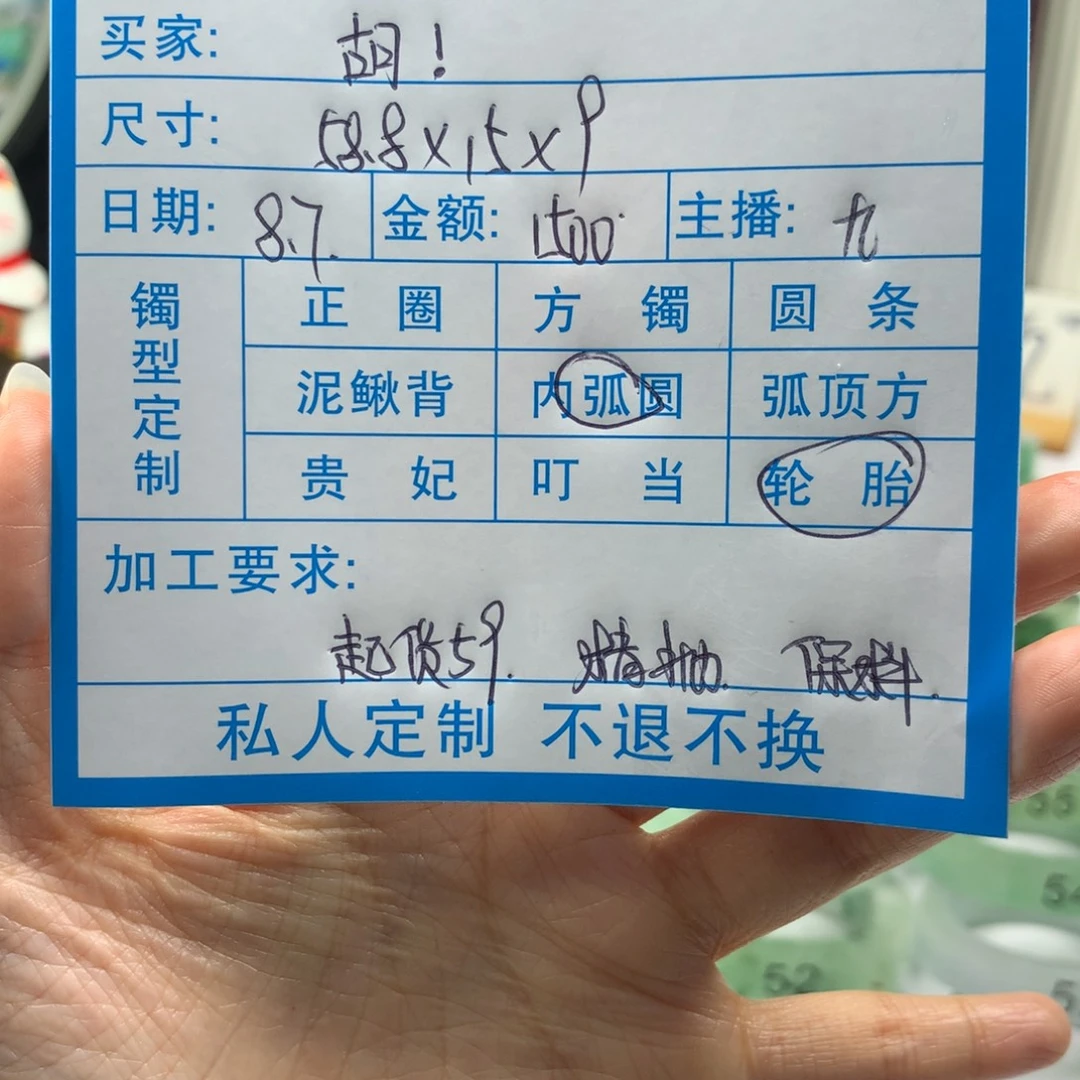 买家: 胡！
尺寸: 58.8×15×9
日期: 8.7. 金额: 1500 主播: 九
镯型定制
正圈 方镯 圆条
泥鳅背 内弧圆 弧顶方
贵妃 叮当 轮胎
加工要求:
起货59. 精抛. 保料.
私人定制 不退不换
55
54
52
5